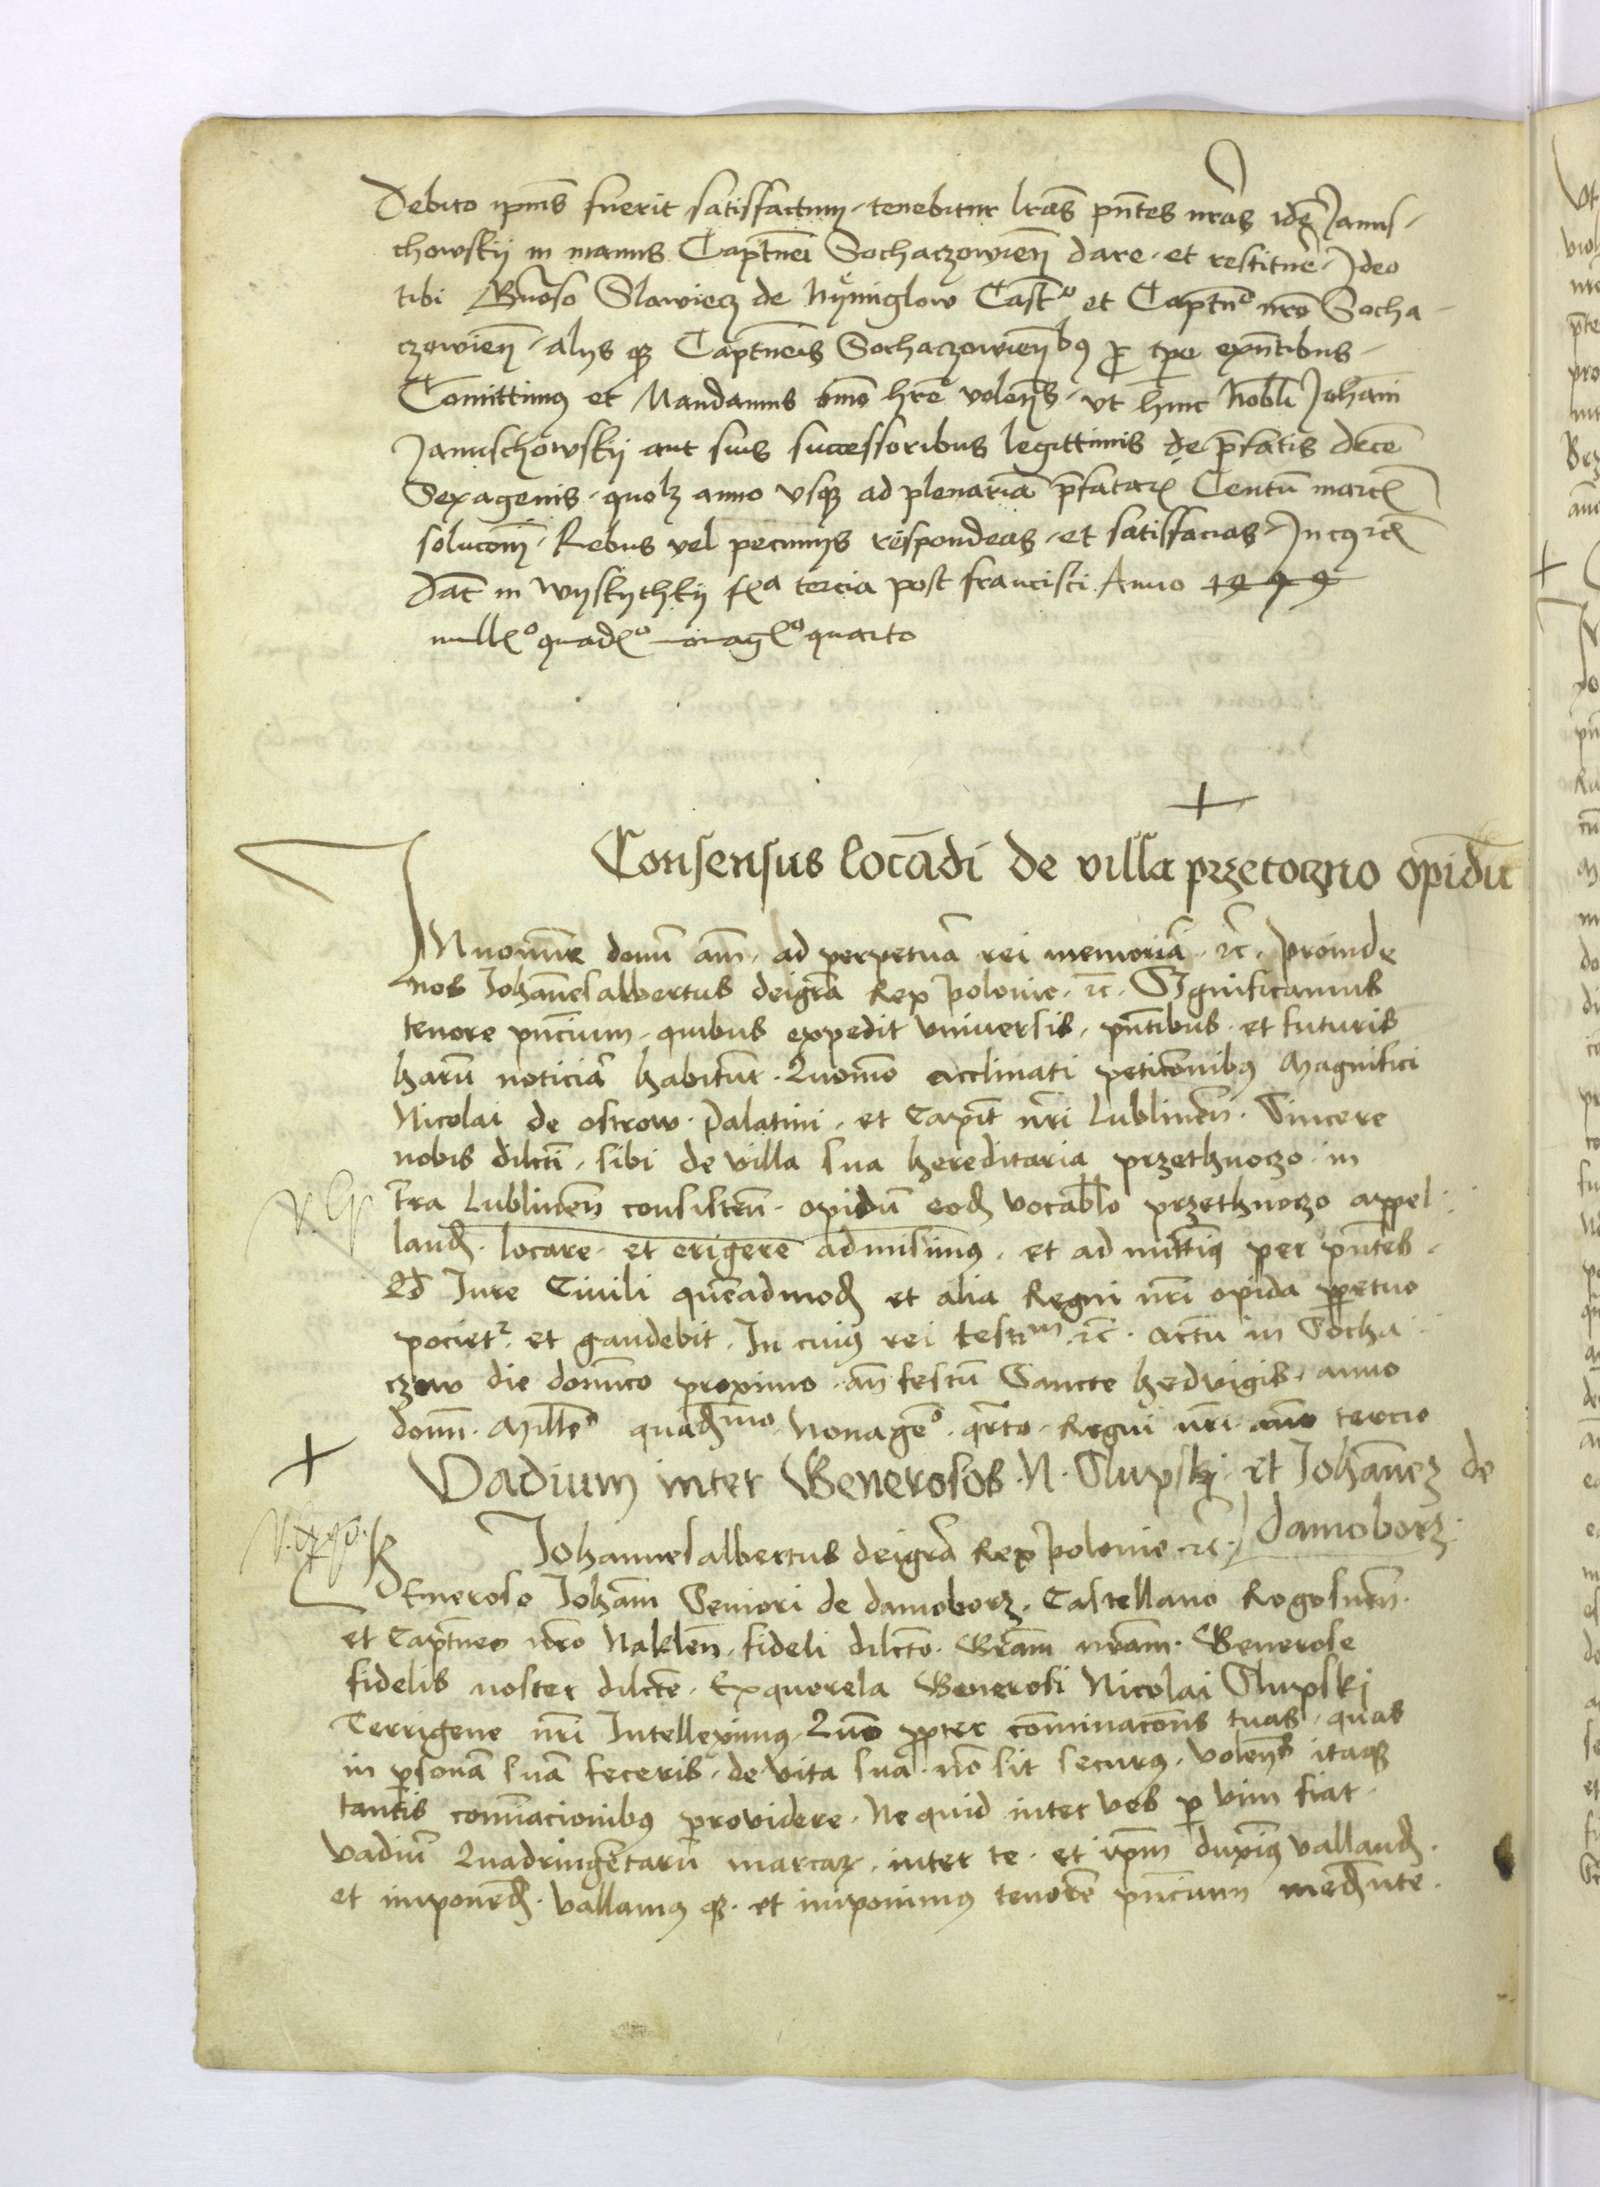 Debito ipius fuerit satisfactum, tenebitur lras pntes nras idē Janus-
chowskij in manus Captnei Sochaczowien dare et restituē, Ideo
tibi Gnoso Slawiecz de Nyemiglow Castᵒ et Captnᵒ nro Socha-
czowien, alijs qз Captneis Sochaczowienbꝰ ꝓ tpe exntibus
Comittimꝰ et Mandamus omo hre volens, vt huic Nobli Johani
Januschowskij aut suis successoribus legittimis de p̄fatis decē
Sexagenis, quolz anno vsqз ad plenariā p̄fatarꝫ Centū marcꝫ
soluconē, Rebus vel pecunijs respondeas et satisfacias, In cꝰ rei
Dat in Wyskythkij fꝫa tercia post francisci Anno 1494
millꝫᵒ quadꝫᵒ nonagꝫᵒ quarto
Consensus locādi de villa przetoczno opidū
In nomīe domī am̄, ad perpetuā rei memoriā rc̄, proinde
nos Johānes albertus deigrā Rex polonie rc̄. Significamus
tenore pn̄cium, quibus expedit vniuersis, pn̄tibus et futuris
harū noticiā habitur̄. Quomō acclinati peticōnibꝰ Magnifici
Nicolai de ostrow, palatini, et Capit̄ nr̄i Lublinen̄. Sincere
nobis dilcti, sibi de villa sua hereditaria przethoczno, in
tr̄ra Lublinen̄ consisten̄, opidū eod̄ vocablo przethoczno appel-
land̄, locare et erigere admisimꝰ, et admittimꝰ per pn̄tes
Qd̄ Jure Ciuili quēadmod̄ et alia Regni nr̄i opida ꝑpetuo
pocietᷣ et gaudebit. In cuiꝰ rei testiᵐ rc̄. Actū in Socha-
czow die domīco proximo an̄ festū Sancte hedvigis, anno
domī Milleᵒ quad̄mo Nonageᵒ qr̄to, Regni nr̄i āno tercio
Vadium inter Generosos N. Slupski et Johānez de
damoborz
Johannes albertus deigrā Rex polonie rc̄
Generoso Johāni Seniori de damoborz, Castellano Rogosnen̄
et Captneo nr̄o Naklen̄, fideli dilcto. Grām nrām. Generose
fidelis noster dilcte. Ex querela Generosi Nicolai Slupskj
Terrigene nr̄i Intelleximꝰ, Quō ꝓpter cōminacōns tuas, quas
in ꝑsonā suā feceris, de vita sua nō sit securꝰ, volen̄s itaqз
tantis cominacionibꝰ prouidere, Ne quid inter vos ꝑ vim fiat
vadiū Quadringētarū marcarꝫ, inter te et ip̄m duximꝰ valland̄
et imponēd̄, vallamꝰ qз et imponimꝰ tenore pn̄cium med̄nte